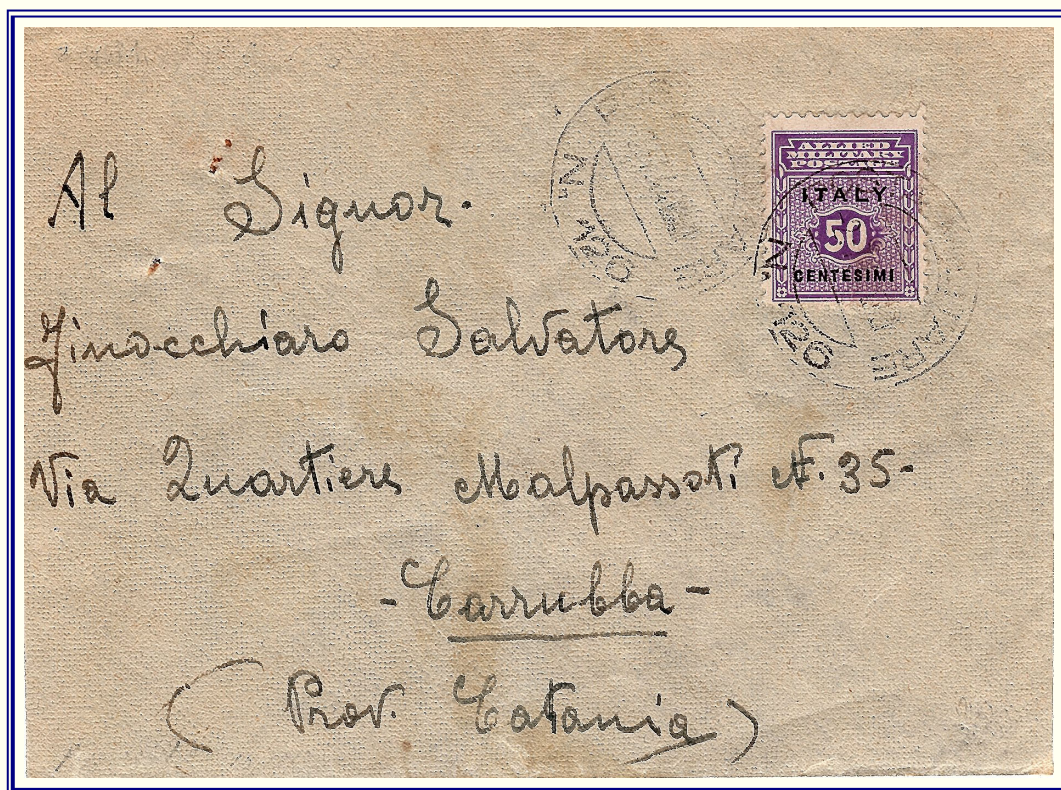 ALLIED
MILITARY
POSTAGE
ITALY
50
CENTESIMI
Al Signor.
Finocchiaro Salvatore
Via Quartiere Malpassoti N. 35-
- Carrubba -
( Prov. Catania )